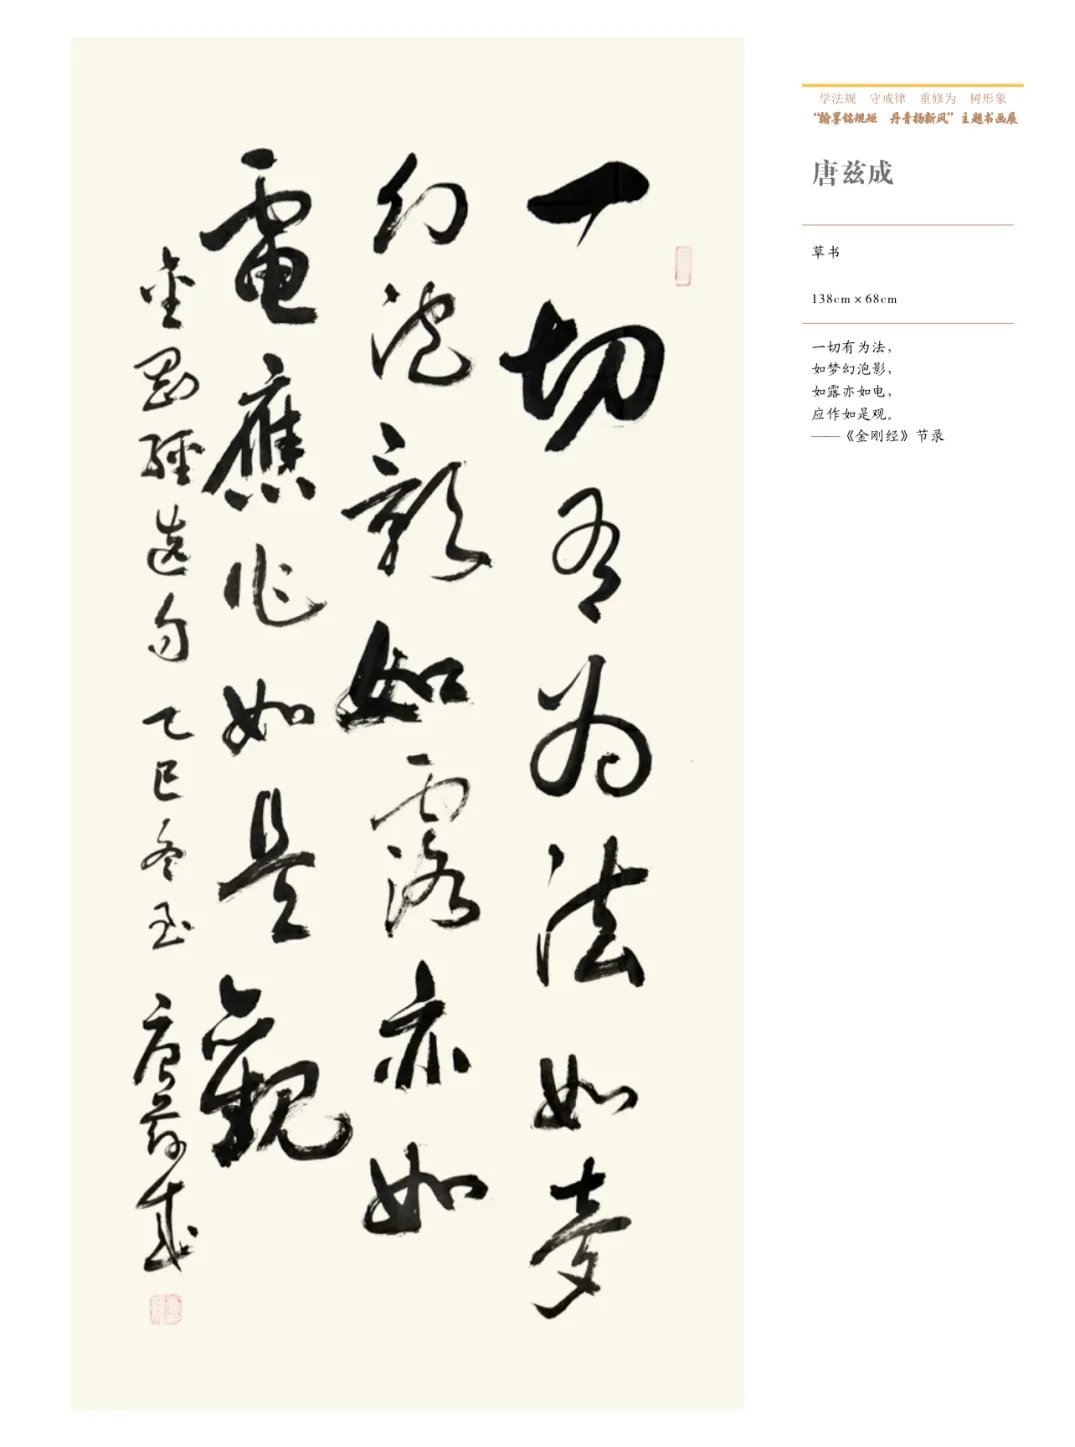 一切有为法如梦
幻泡影如露亦如
電應作如是觀
金剛經选句乙巳冬至唐兹成
学法规　守戒律　重修为　树形象
“翰墨铭规矩　丹青扬新风”主题书画展
唐兹成
草书
138cm×68cm
一切有为法，
如梦幻泡影，
如露亦如电，
应作如是观。
——《金刚经》节录